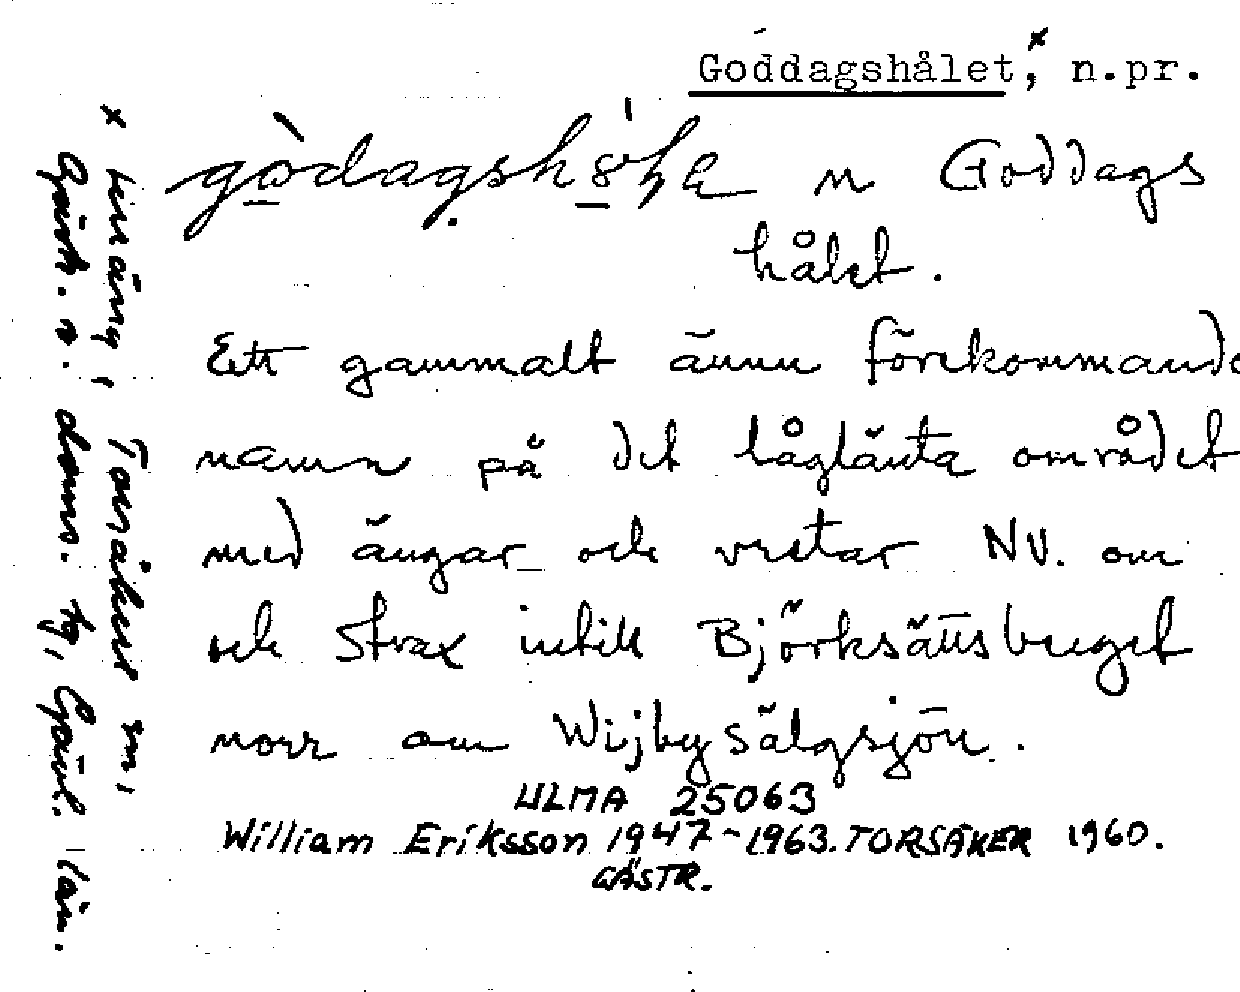 Goddagshålet,ˣ n.pr.
n Goddags
hålet.
Ett gammalt ännu förekommande
namn på det låglänta området
med ängar och vretar NV. om
och strax intill Björksättsberget
norr om Wijbysälgsjön.
ULMA 25063
William Eriksson 1947-1963. TORSÅKER 1960.
GÄSTR.
x i Torsåkers sn,
Gästr. ö. doms. tg, Gävl. län.